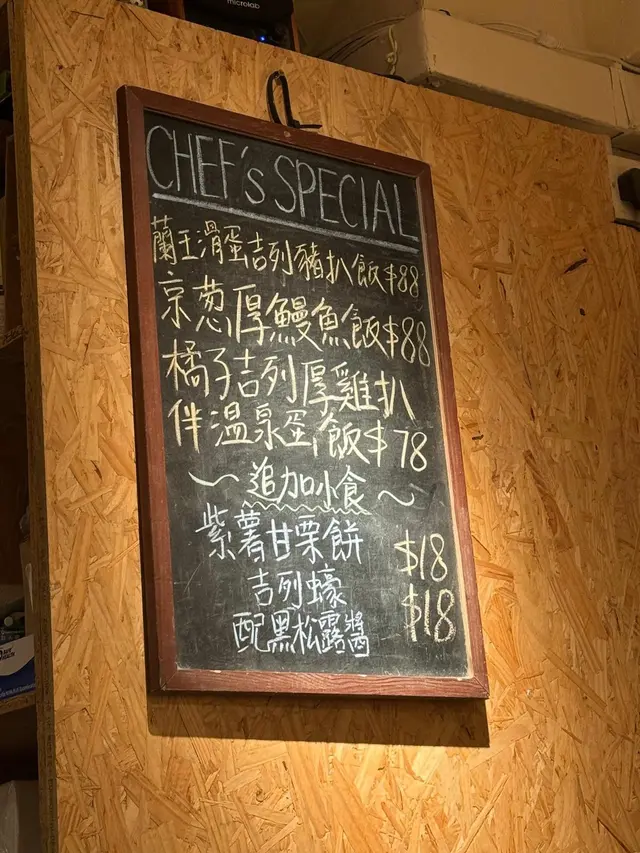 microlab
CHEF's SPECIAL
蘭王滑蛋吉列豬扒飯$88
京葱厚鰻魚飯$88
橘子吉列厚雞扒
伴溫泉蛋飯$78
~追加小食~
紫薯甘栗餅 $18
吉列蠔 $18
配黑松露醬